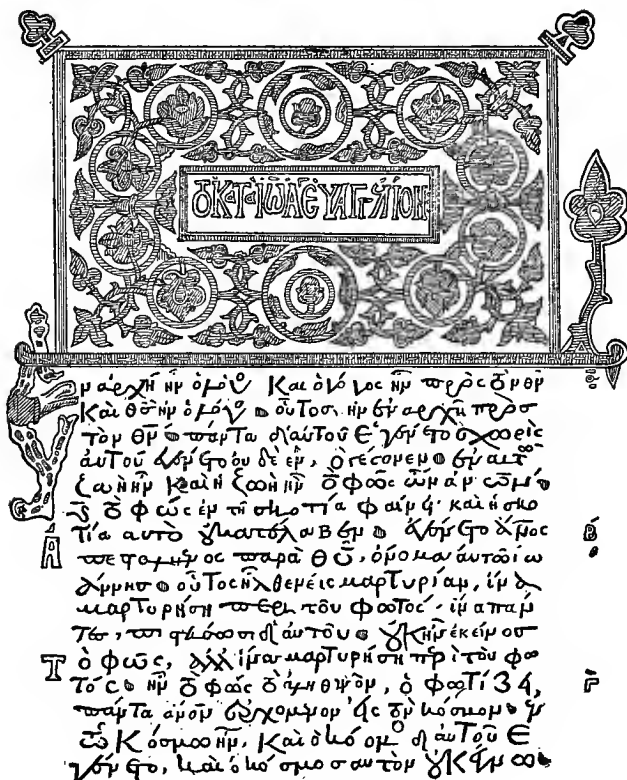 ΤΟ ΚΑΤΑ ΙΩΑ ΕΥΑΓΓΛΙΟΝ
Εν ἀρχῆ ἦν ὁ λόγος Καὶ ὁ λόγος ἦν πρὸς τὸν θν
Καὶ θς ἦν ὁ λόγος· οὗτος ἦν ἐν ἀρχῆ πρὸς
τὸν θν· πάντα δι αὐτοῦ Ἐγένετο χωρὶς
αὐτοῦ ἐγένετο οὐδὲ ἕν, ὃ γέγονεν· ἐν αὐτῶ
ζωὴ ἦν Καὶ ἡ ζωὴ ἦν τὸ φῶς τῶν ἀν
τὸ φῶς ἐν τῆ σκοτία φαίνει· καὶ ἡ σκο
τία αὐτὸ οὐ κατέλαβεν· ἐγένετο ἄνος
Α ἀπεσταλμένος παρὰ θῦ, ὄνομα αὐτῶ ἰω Β
άννης· οὗτος ἦλθεν εἰς μαρτυρίαν, ἵνα
μαρτυρήση περὶ τοῦ φωτός· ἵνα πάν
τες, πιστεύσωσι δι αὐτοῦ· οὐκ ἦν ἐκεῖνος
Τ ὸ φῶς, ἀλλ ἵνα μαρτυρήση περὶ τοῦ φω
τός· ἦν τὸ φῶς τὸ ἀληθινὸν, ὃ φωτίζει, Γ
πάντα ἄνον ἐρχόμενον εἰς τὸν κόσμον· ἐν
τῶ Κόσμω ἦν, Καὶ ὁ κόσμος δι αὐτοῦ Ἐ
γένετο, καὶ ὁ κόσμος αὐτὸν οὐκ ἔγνω·